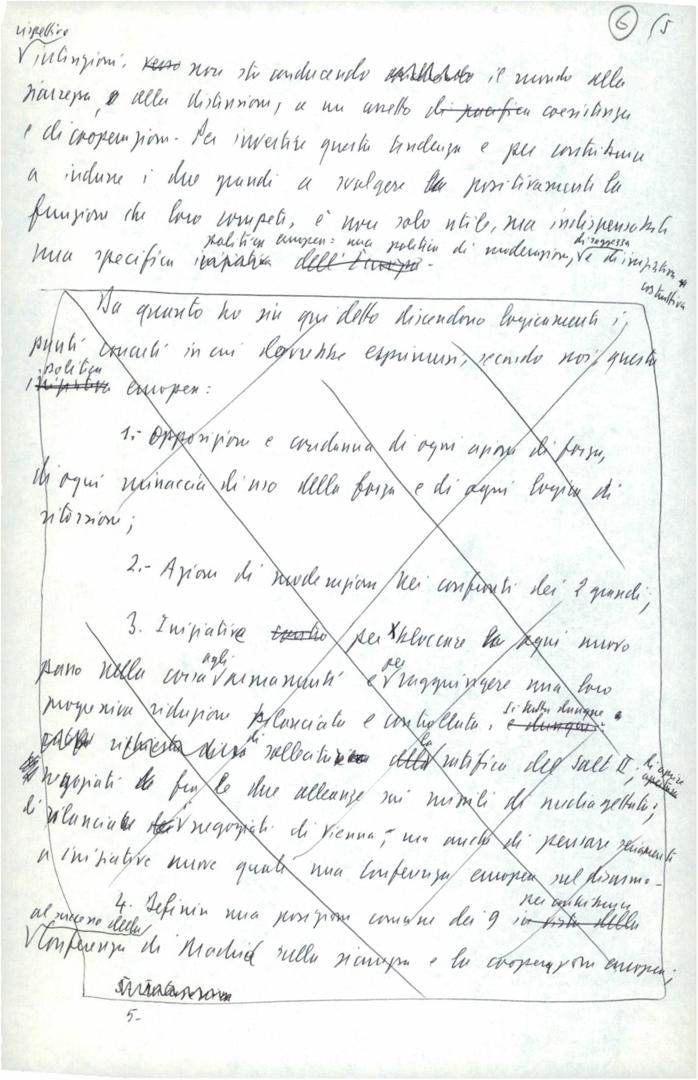 6 15
rispettive
intenzioni, verso non sta conducendo il mondo alla
sicurezza, e alla distensione, a un assetto di pacifica coesistenza
e di cooperazione. Per invertire questa tendenza e per contribuire
a indurre i due grandi a svolgere la positivamente la
funzione che loro compete, è non solo utile, ma indispensabile
politica europea: una politica di moderazione, di saggezza
una specifica iniziativa dell'Europa. e di iniziativa
costruttiva
Da quanto ho sin qui detto discendono logicamente i
punti concreti in cui dovrebbe esprimersi, secondo noi, questa
politica
iniziativa europea:
1.- Opposizione e condanna di ogni azione di forza,
di ogni minaccia di uso della forza e di ogni logica di
ritorsione;
2.- Azione di moderazione nei confronti dei 2 grandi;
3. Iniziative contro per bloccare la ogni nuovo
passo nella corsa agli armamenti e per raggiungere una loro
progressiva riduzione bilanciata e controllata. si tratta dunque e dunque:
richiesta di sollecitare della la ratifica del Salt II; di aprire
negoziati fra le due alleanze sui missili di media gettata;
di rilanciare i negoziati di Vienna; ma anche di pensare seriamente
a iniziative nuove quali una Conferenza europea sul disarmo.
4. Definire una posizione comune dei 9 in vista della per contribuire
al successo della
Conferenza di Madrid sulla sicurezza e la cooperazione europea;
5-